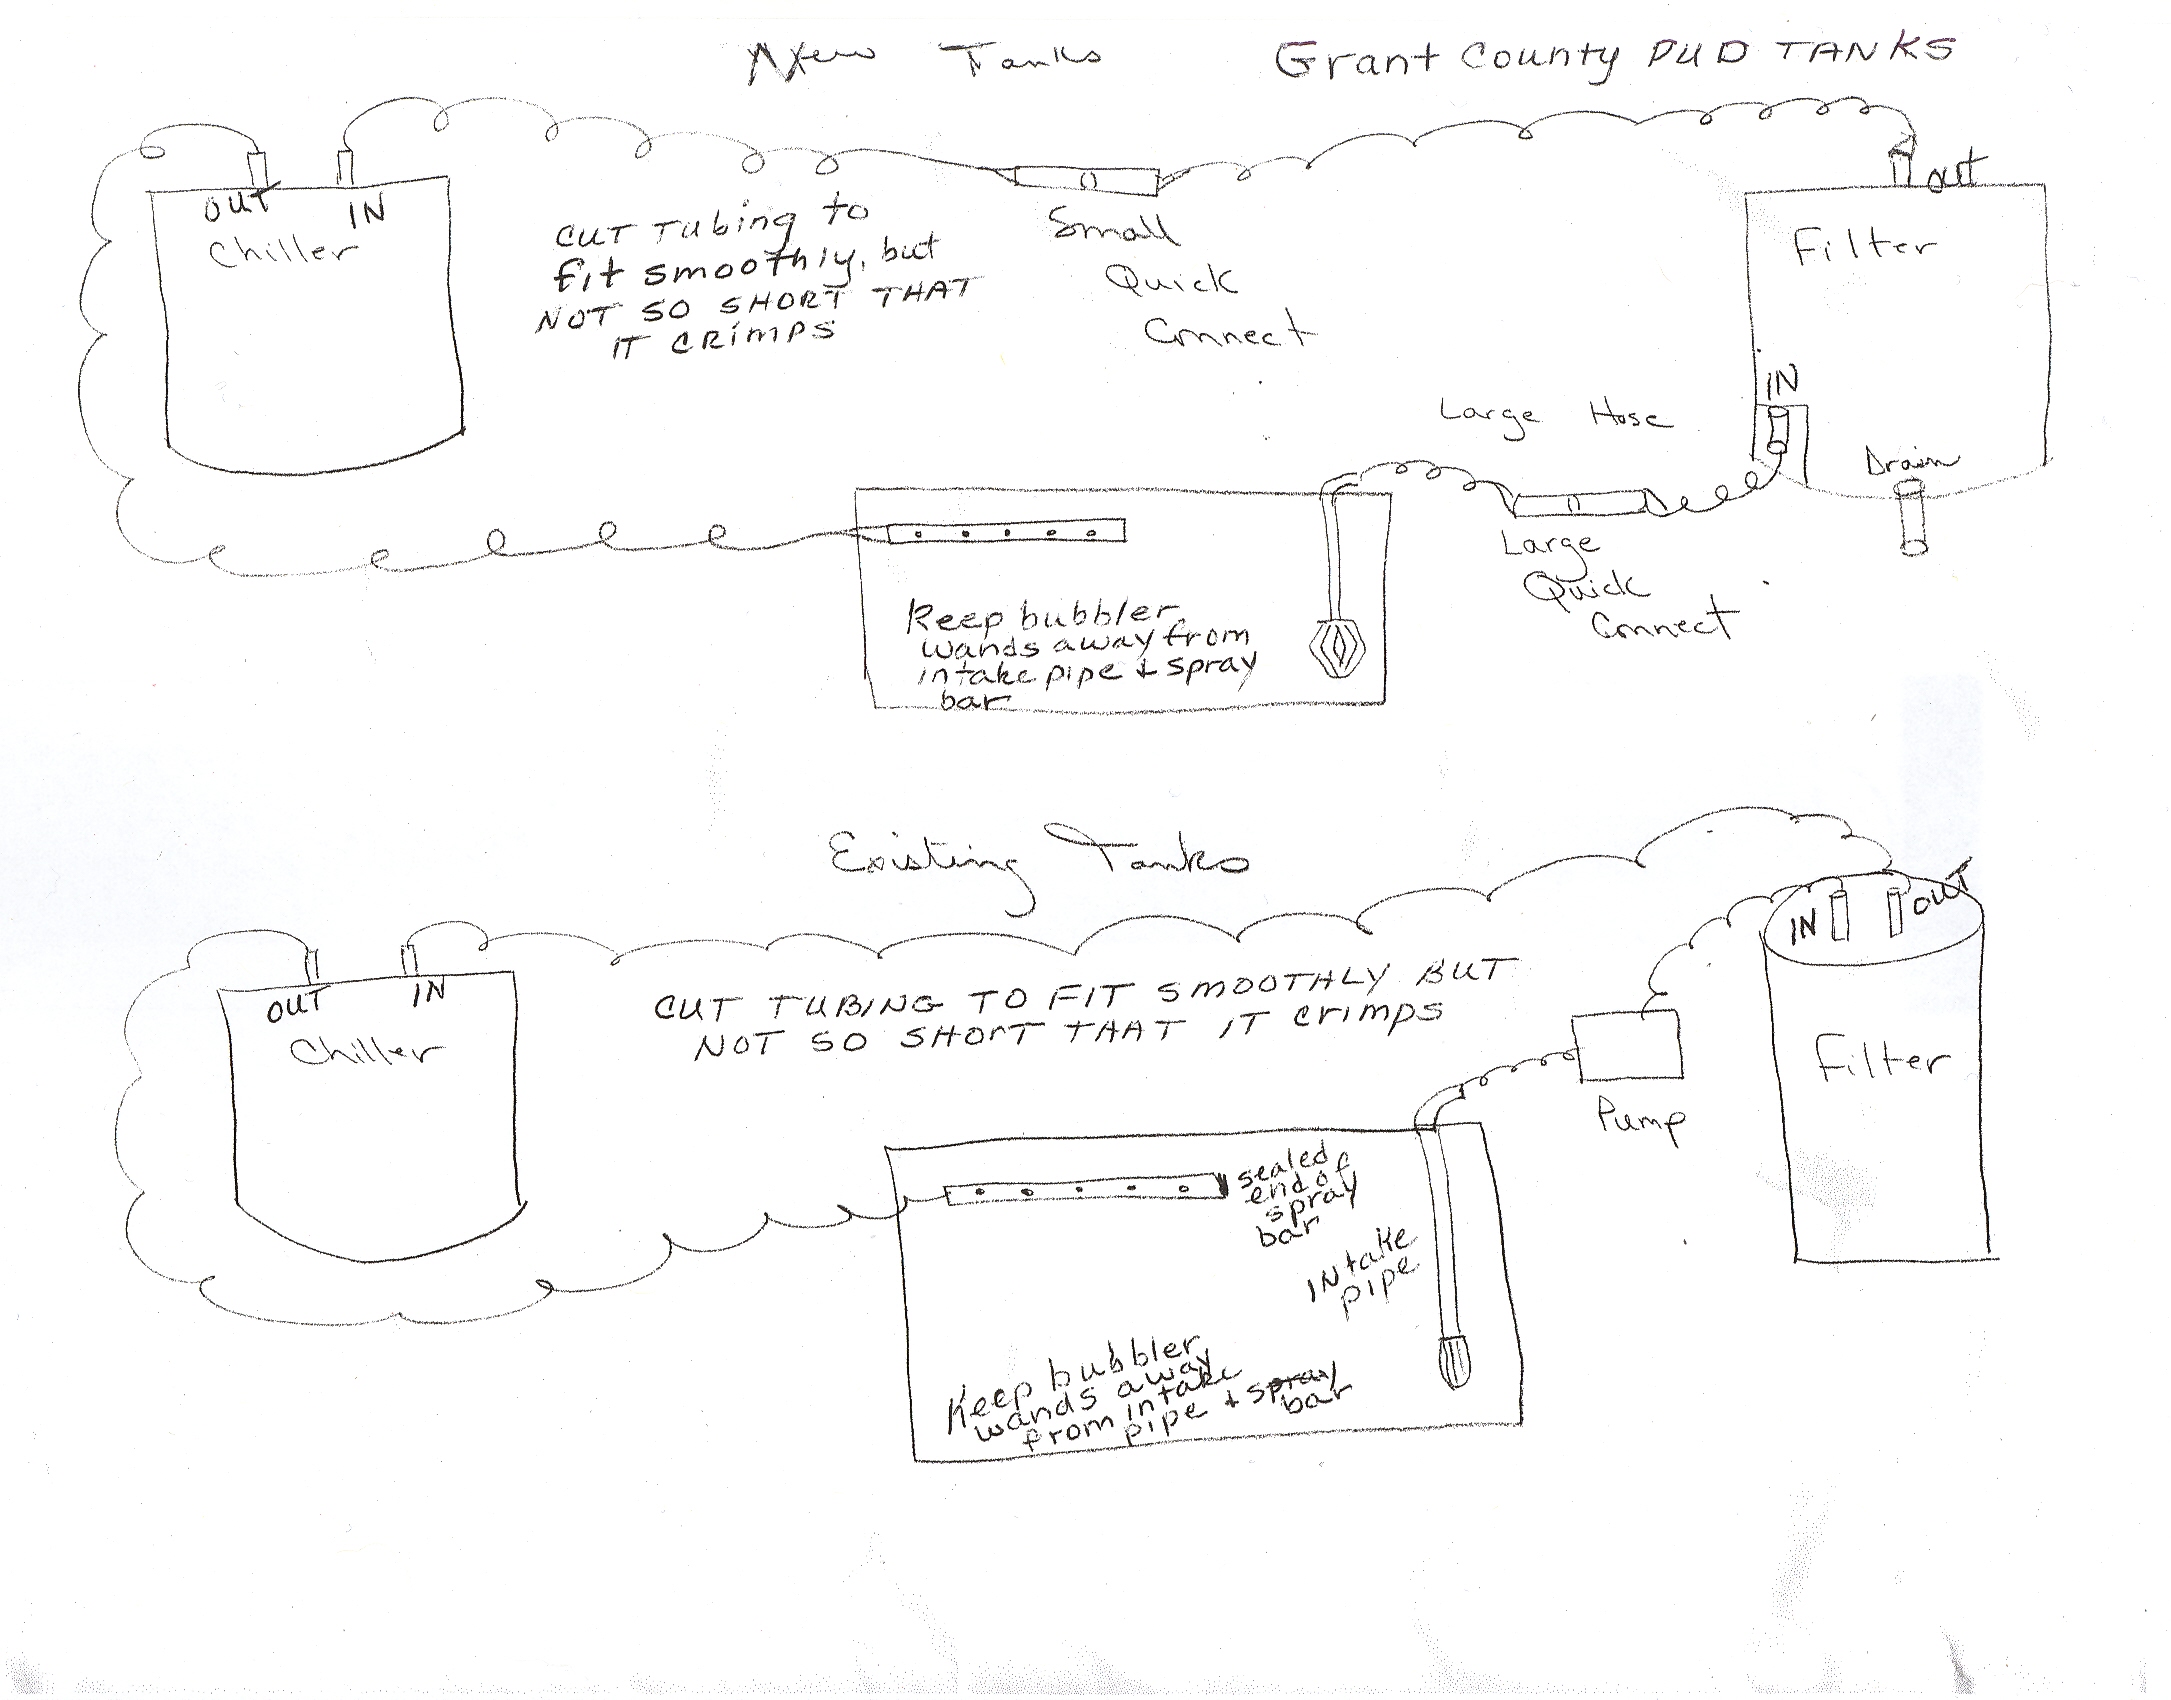 New Tanks
Grant County PUD TANKS
OUT
IN
Chiller
CUT Tubing to
fit smoothly, but
NOT SO SHORT THAT
IT CRIMPS
Small
Quick
Connect
OUT
Filter
IN
Large Hose
Drain
Large
Quick
Connect
Keep bubbler
wands away from
intake pipe + spray
bar
Existing Tanks
OUT
IN
Chiller
CUT TUBING TO FIT SMOOTHLY BUT
NOT SO SHORT THAT IT CRIMPS
IN
OUT
Filter
Pump
sealed
end of
spray
bar
INtake
pipe
Keep bubbler
wands away
from intake
pipe + spray
bar